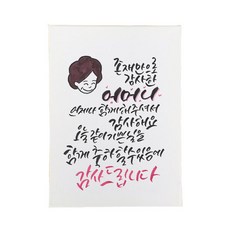 존재만으로
감사한
어머니
언제나 함께해주셔서
감사해요
오늘 같이 기쁜 날을
함께 축하할 수 있음에
감사드립니다